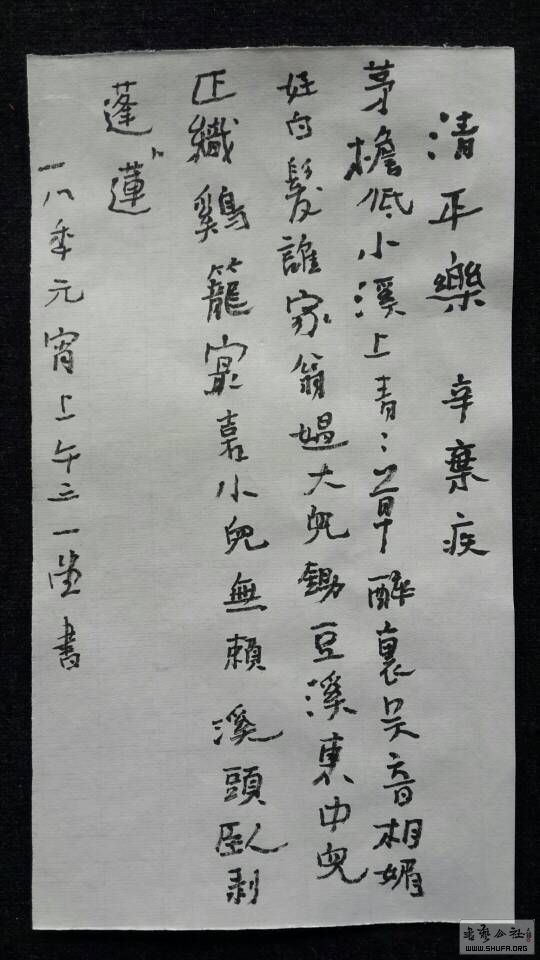 清平樂 辛棄疾
茅檐低小溪上青〻草醉裏吳音相媚
好白髮誰家翁媼大兒鋤豆溪東中兒
正織鷄籠最喜小兒無賴溪頭臥剥
蓬蓮
一八秊元宵上午三一堂書
书艺公社
WWW.SHUFA.ORG